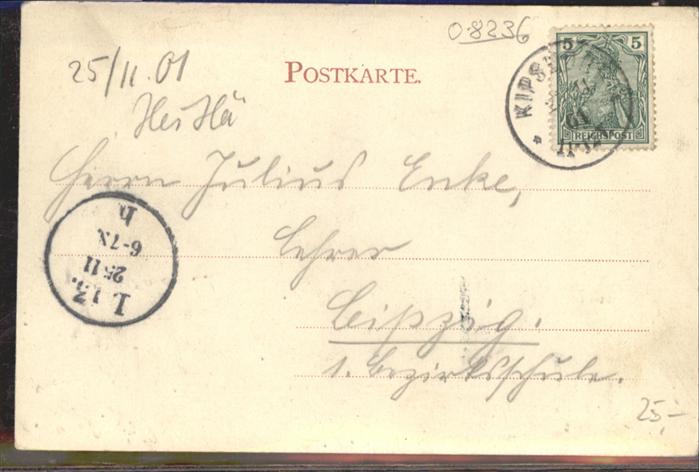 0-8236
25/11.01
POSTKARTE.
5 5
REICHSPOST
KIPS
01
11-12
Herrn Julius Enke,
Lehrer
Leipzig.
1. Bezirksschule.
L. 13.
25 11
6-7N.
h
25,-